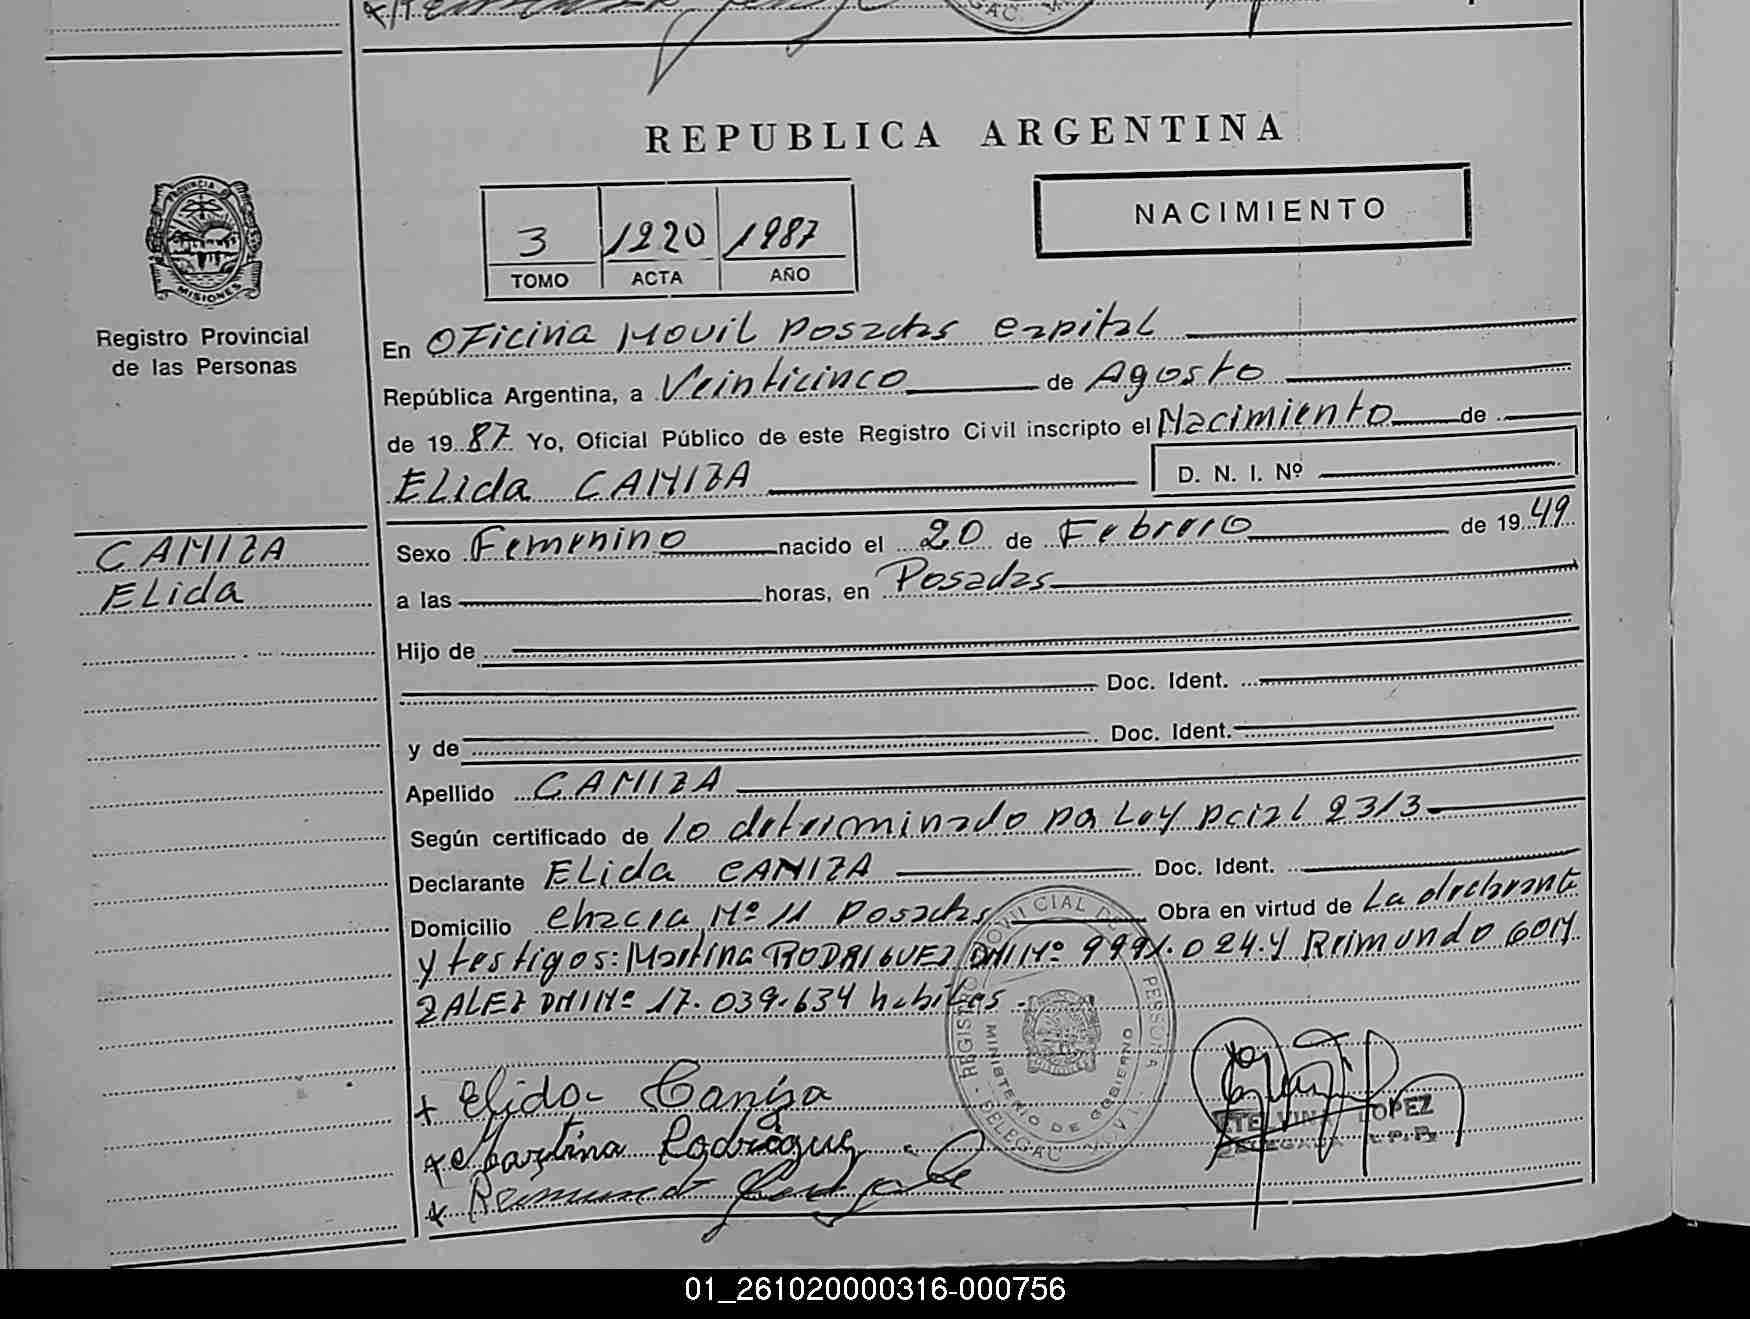 REPUBLICA ARGENTINA
NACIMIENTO
3 1220 1987
TOMO ACTA AÑO
PROVINCIA DE
MISIONES
Registro Provincial
de las Personas
En OFicina Movil Posadas
República Argentina, a Veinticinco de Agosto
de 1987 Yo, Oficial Público de este Registro Civil inscripto el Nacimiento de
ELida CANIZA D. N. I. Nº
CANIZA
ELida
Sexo Femenino nacido el 20 de Febrero de 1949
a las horas, en Posadas
Hijo de
Doc. Ident.
y de Doc. Ident.
Apellido CANIZA
Según certificado de Lo determinado por Ley Pcial 2313
Declarante ELida CANIZA Doc. Ident.
Domicilio chacra Nº 11 Posadas Obra en virtud de La declarante
y testigos: Martina RODRIGUEZ DNI Nº 9991.024 y Reimundo GON
ZALEZ DNI Nº 17.039.634 habiles.
REGISTRO PROVINCIAL DE PERSONA
MINISTERIO DE GOBIERNO
+ Elida Caniza
x Martina Rodriguez
LOPEZ
x Reimundo
01_261020000316-000756